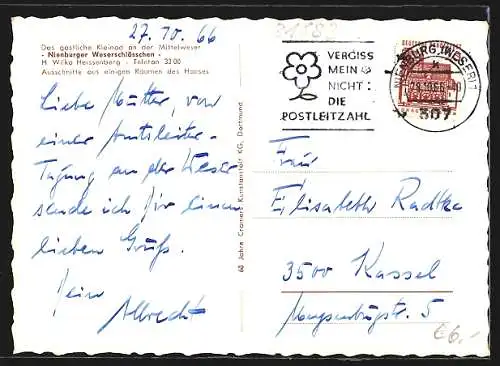 27. 10. 66
Das gastliche Kleinod an der Mittelweser
- Nienburger Weserschlösschen -
H. Wilko Heissenberg - Telefon 3300
Ausschnitte aus einigen Räumen des Hauses
Liebe Mutter, von
einer Amtsleiter-
Tagung an der Weser
sende ich Dir einen
lieben Gruß.
Dein
Albrecht
60 Jahre Cramers Kunstanstalt KG, Dortmund
VERGISS
MEIN
NICHT:
DIE
POSTLEITZAHL
NIENBURG (WESER) 1
307
DEUTSCHE
Frau
Elisabeth Radtke
3500 Kassel
5
€6,-